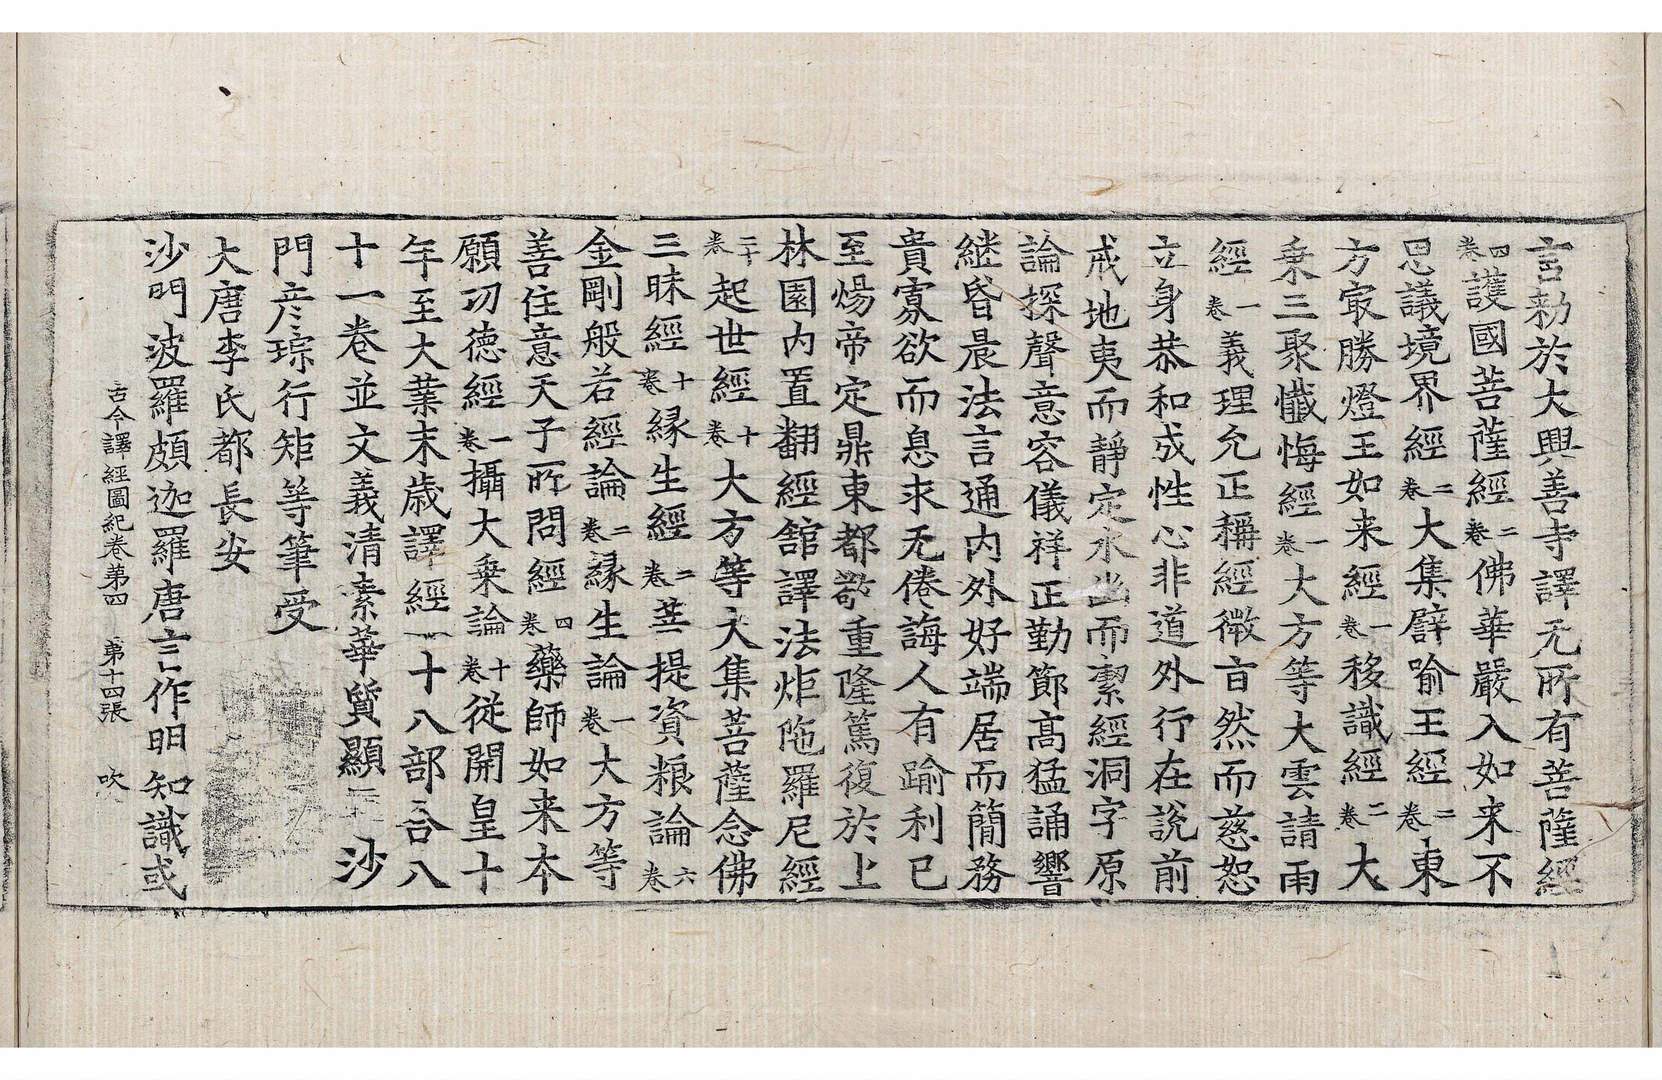 言勑於大興善寺譯无所有菩薩經
四卷護國菩薩經二卷佛華嚴入如来不
思議境界經二卷大集譬喻王經二卷東
方㝡勝燈王如来經一卷移識經二卷大
乗三聚懺悔經一卷大方等大雲請雨
經一卷義理允正稱經微旨然而慈恕
立身恭和成性心非道外行在說前
戒地夷而靜定水幽而潔經洞字原
論探聲意容儀祥正勤節髙猛誦響
継昏晨法言通内外好端居而簡務
貴寡欲而息求无倦誨人有踰利已
至煬帝定鼎東都敬重隆篤復於上
林園内置翻經館譯法炬陁羅尼經
二十卷起世經十卷大方等大集菩薩念佛
三昧經十卷縁生經二卷菩提資粮論六卷
金剛般若經論二卷縁生論一卷大方等
善住意天子所問經四卷藥師如来本
願功徳經一卷攝大乗論十卷従開皇十
年至大業末歳譯經一十八部合八
十一卷並文義清素華質顯 沙
門彦琮行矩等筆受
大唐李氏都長安
沙門波羅頗迦羅唐言作明知識或
古今譯經圖紀卷第四 第十四張 吹